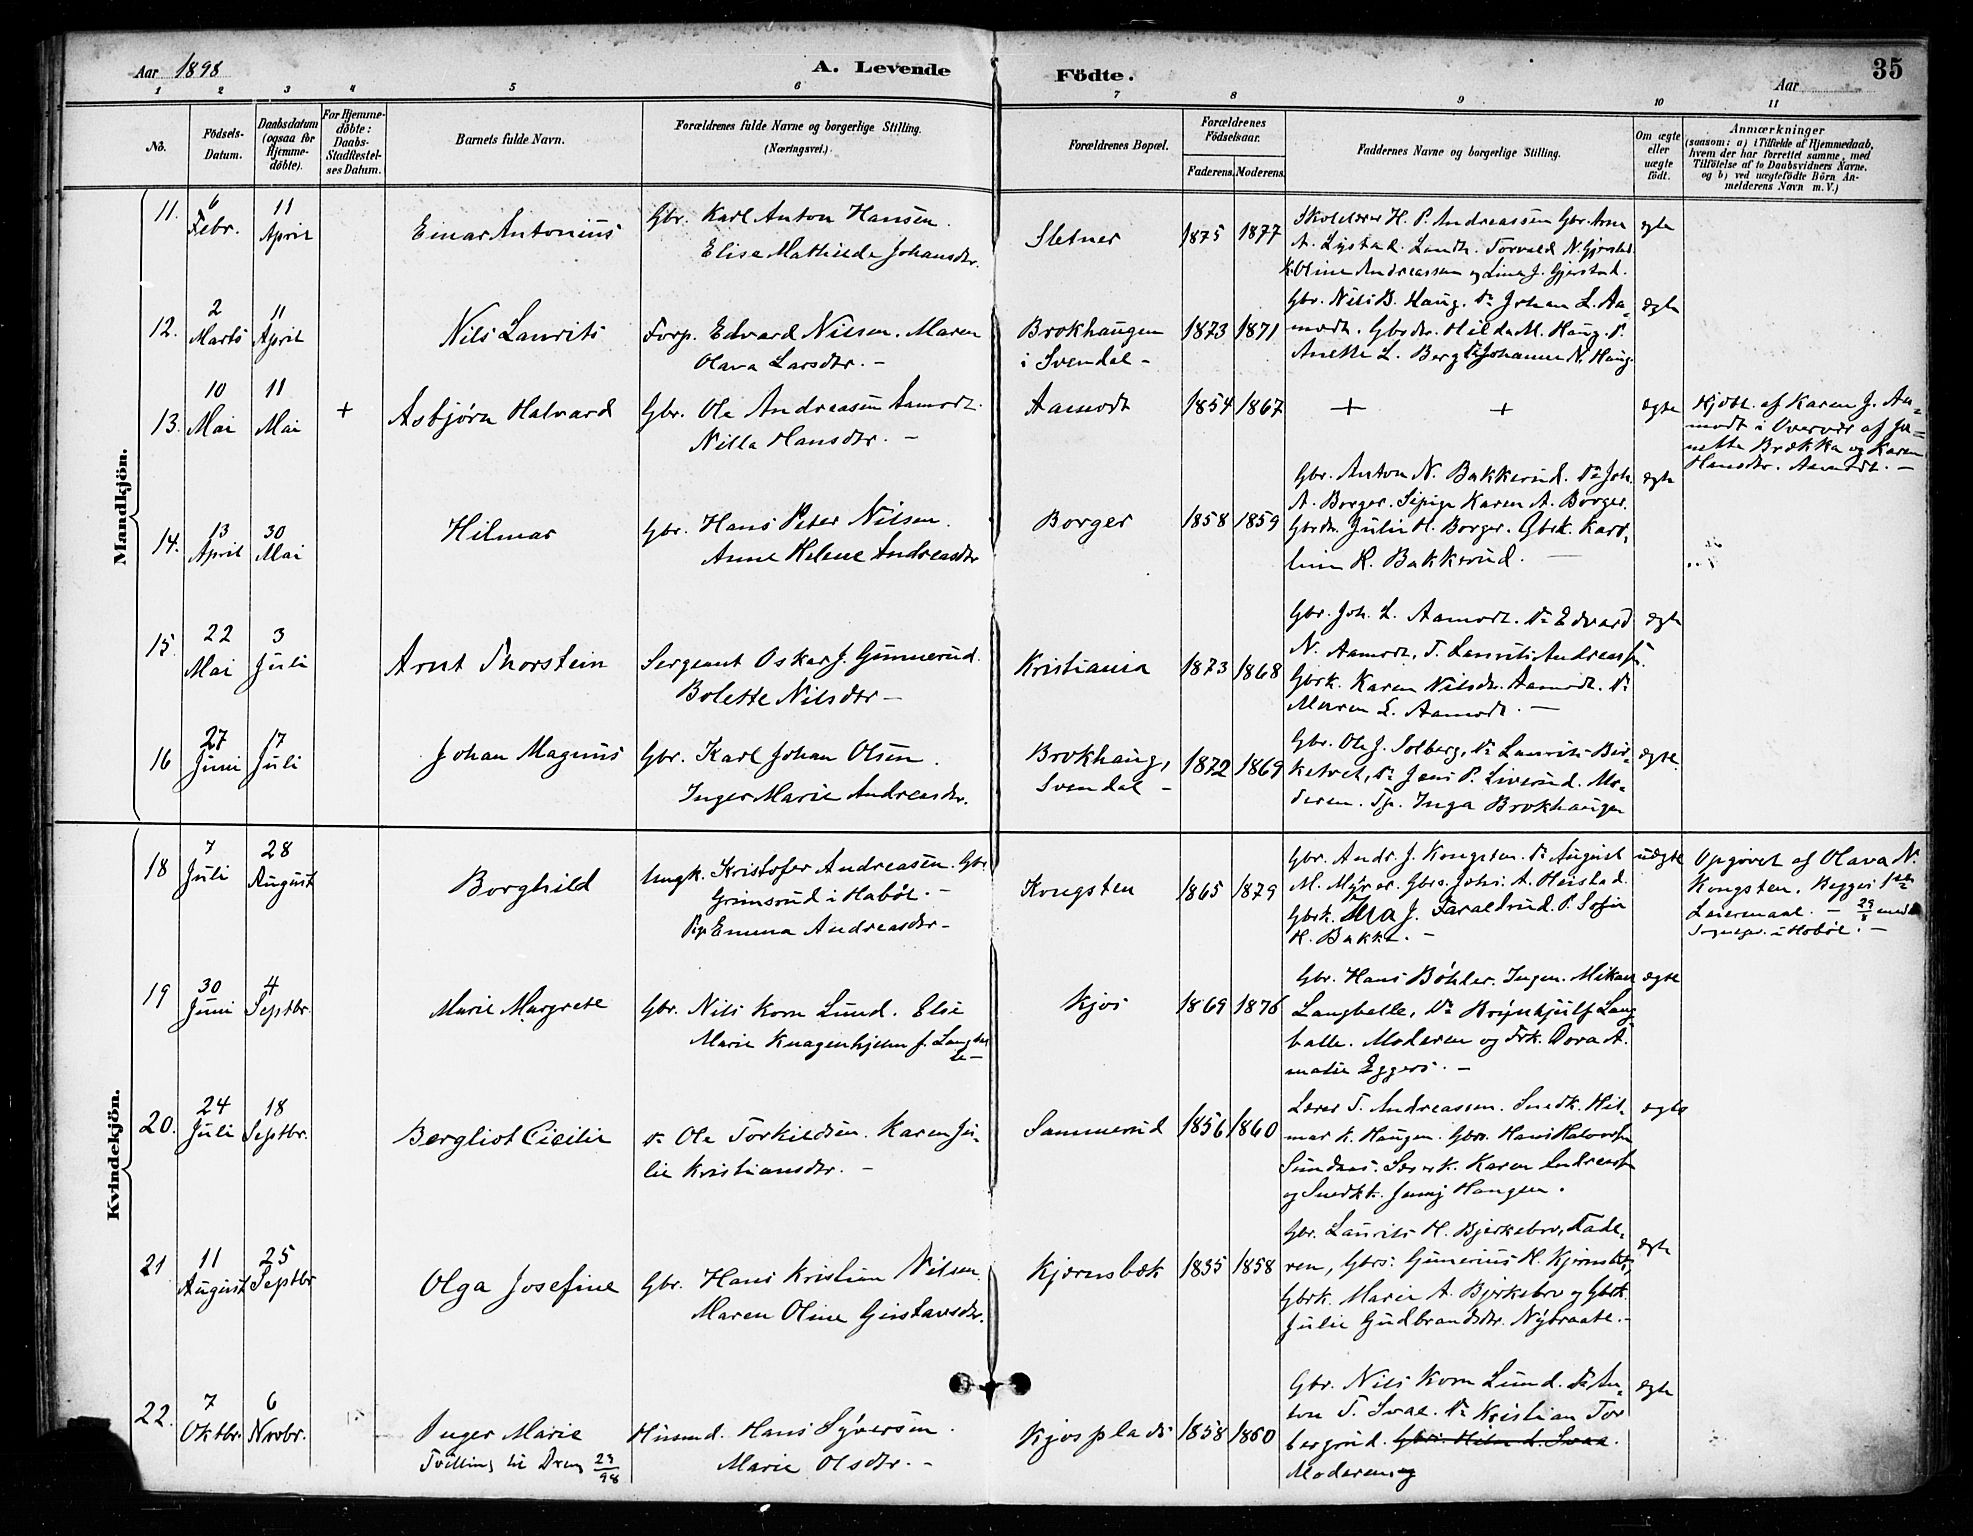 Aar 1898
A. Levende
Födte.
Aar
35
1 2 3 4 5 6 7 8 9 10 11
No.
Födsels-
Datum.
Daabsdatum
(ogsaa for
Hjemme-
döbte).
For Hjemme-
döbte:
Daabs-
Stadfæstel-
ses Datum.
Barnets fulde Navn.
Forældrenes fulde Navne og borgerlige Stilling.
(Næringsvei.)
Forældrenes Bopæl.
Forældrenes
Födselsaar.
Faderens. Moderens.
Faddernes Navne og borgerlige Stilling.
Om ægte
eller
uægte
födt.
Anmærkninger
(saasom: a) i Tilfælde af Hjemmedaab,
hvem der har forrettet samme, med
Tilföielse af to Daabsvidners Navne,
og b) ved uægtefödte Börn An-
melderens Navn m. V.)
Mandkjön.
11. 6 Febr. 11 April
Einar Antonius
Gbr. Karl Anton Hansen.
Elise Mathilde Johansdtr.
Sletner
1875 1877
Skolelærer H. P. Andreassen Gbr. Arne
A. Lystad. Landh. Torvald N. Gjerstad.
K. Oline Andreassen og Lina J. Gjerstad.
ægte
12. 2 Marts 11 April
Nils Laurits
Forp. Edvard Nilsen. Maren
Olava Larsdtr. -
Brokhaugen
i Svendal -
1873 1871
Gbr. Nils B. Haug. Do Johan L. Aa-
modt. Gbrdtr. Hilda M. Haug. P.
Anette L. Berg Do Johanne N. Haug.
ægte
13. 10 Mai 11 Mai +
Asbjørn Halvard
Gbr. Ole Andreasen Aamodt.
Nilla Hansdtr. -
Aamodt
1854 1867
+ +
ægte
Hjdbt. af Karen J. Aa-
modt i Overvær af Ja-
nette Brækka og Karen
Hansdtr. Aamodt. -
14. 13 April 30 Mai
Hilmar
Gbr. Hans Peter Nilsen.
Anne Helene Andreasdtr
Borger
1858 1859
Gbr. Anton N. Bakkerud. Do Joh.
A. Borger. Sepige Karen A. Borger.
Gbrdtr. Julie H. Borger. Gbrk. Karo-
line K. Bakkerud. -
ægte
15. 22 Mai 3 Juli
Arnt Thorstein
Sergeant Oskar J. Gunnerud.
Bolette Nilsdtr -
Kristiania
1873 1868
Gbr. Joh. L. Aamodt. Do Edvard
N. Aamodt, T. Laurits Andreassen.
Gbrk. Karen Nilsdtr. Aamodt. Do
Maren L. Aamodt. -
ægte
16 27 Juni 17 Juli
Johan Magnus
Gbr. Karl Johan Olsen.
Inger Marie Andreasdtr.
Brokhaug,
Svendal -
1872 1869
Gbr. Ole J. Solberg, Do Laurits Bir-
ketvet, Do Jens P. Liverud. Mo-
deren. Pp. Inga Brokhaugen
ægte.
Kvindekjön.
18 7 Juli 28 August
Borghild
Ungk. Kristofer Andreasen. Gbr
Grimsrud i Habøl. -
Pp. Emma Andreasdtr -
Kongsten
1865 1879
Gbr. Andr. J. Kongsten. Do August
M. Myrer. Gbrs. Johs. A. Heistad.
Gbrk. Ina J. Taraldrud. P. Sofie
H. Bakke. -
uægte
Opgivet af Olava N.
Kongsten. Begges 1ste
Leiermaal. - 29/8 medd.
Sognepr. i Habøl. -
19 30 Juni 4 Septbr.
Marie Margrete
Gbr. Nils Korn Lund. Else
Marie Knagenhjelm f. Langbal
le -
Kjos
1869 1876
Gbr. Hans Bøhler. Ingen. Mikael
Langballe, Do Brynhjulf Lang
balle. Moderen og Frk. Dora A.
malie Eggers. -
ægte
20. 24 Juli 18 Septbr.
Bergliot Cicilie
Do Ole Torkildsen. Karen Ju-
lie Kristiansdtr. -
Sammerud
1856 1860
Lærer T. Andreassen. Snedk. Hil-
mar K. Haugen. Gbrs. Hans Halvorsen
Sundaas. Lærerk. Karen Andreassen
og Snedkk. Jenny Haugen.
ægte
21 11 August 25 Septbr
Olga Josefine
Gbr. Hans Kristian Nilsen.
Maren Oline Gustavsdtr.
Kjærnsbæk
1855 1858
Gbr. Laurits H. Bjerkebro, Fade-
ren, Gbrs: Gunerius H. Kjernsbæk,
Gbrk. Marie A. Bjerkebro og Gbrk.
Julie Gudbrandsdtr. Nybraate. -
ægte
22. 7 Oktbr. 6 Novbr.
Inger Marie
Tvilling til Dreng 29/98
Husmd. Hans Syversen.
Marie Olsdtr. -
Kjosplads
1858 1860
Gbr. Nils Korn Lund. Do An-
ton T. Svae. Do Kristian Tor
bergrud. Gbrs. Hilm d. Svae.
Moderen og
ægte